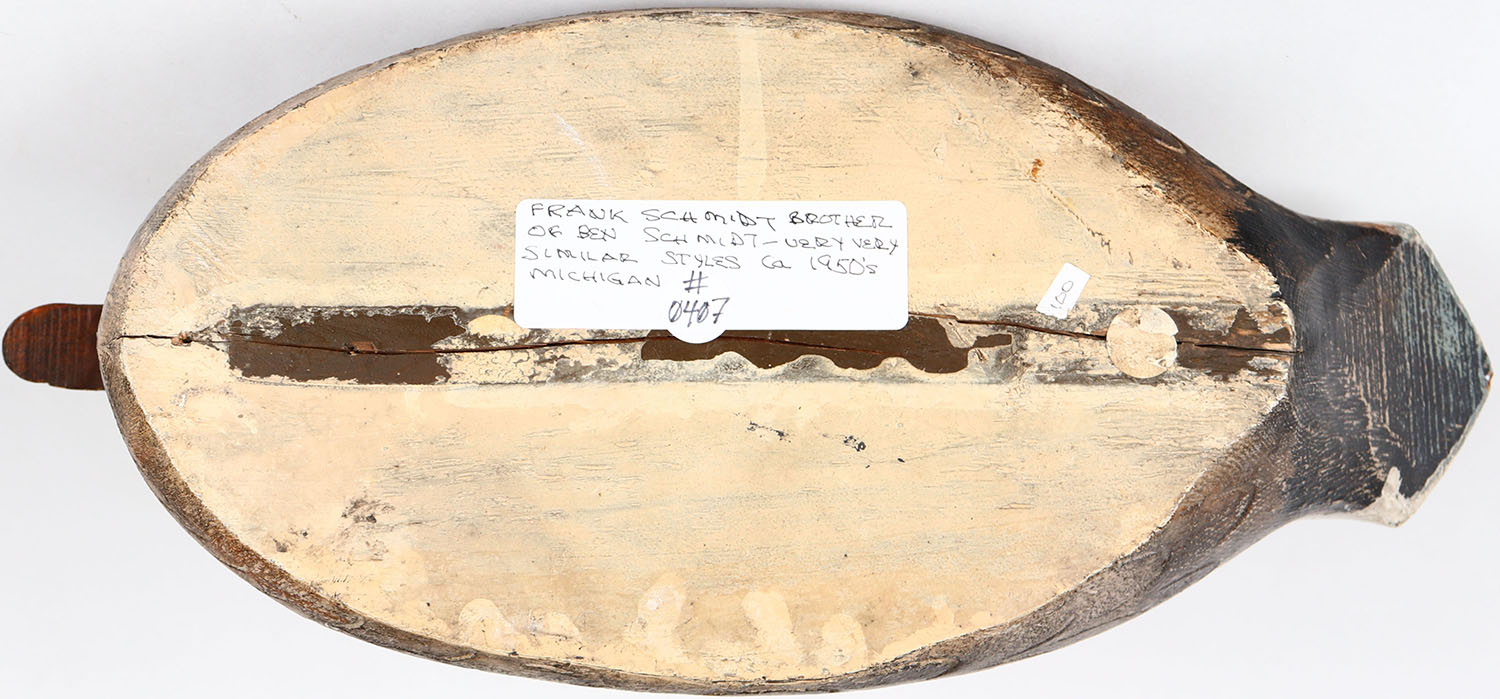 FRANK SCHMIDT BROTHER
OF BEN SCHMIDT - VERY VERY
SIMILAR STYLES Ca 1950's
MICHIGAN #
0407
100